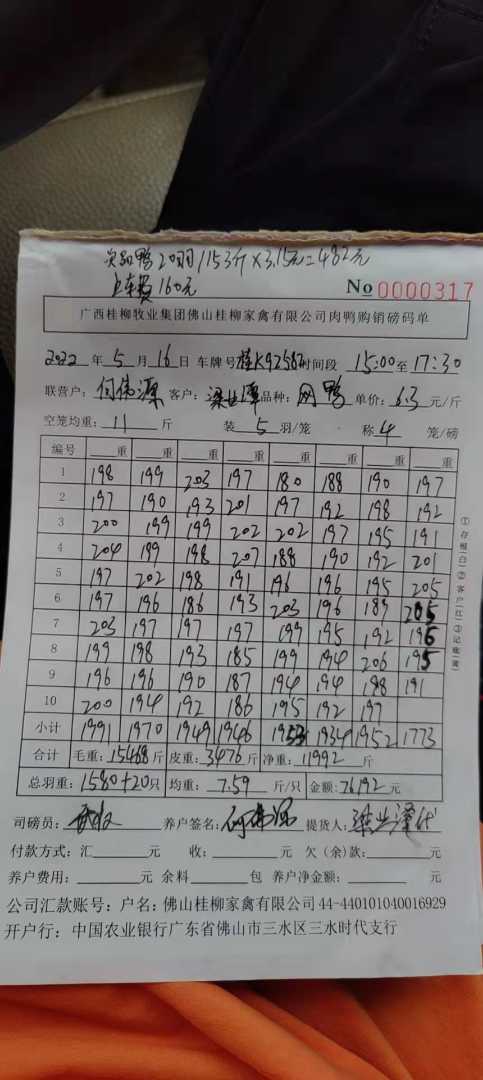 次品鸭20羽/153斤×3.15元=482元
上车费160元
No 0000317
广西桂柳牧业集团佛山桂柳家禽有限公司肉鸭购销磅码单
2022年5月16日 车牌号桂K92567时间段 15:00至17:30
联营户：何伟源 客户：梁业泽 品种：网鸭 单价：6.3元/斤
空笼均重：11斤 装5羽/笼 称4笼/磅
编号 重 重 重 重 重 重 重 重
1 198 199 203 197 180 188 190 197
2 197 190 193 201 197 192 198 192
3 200 199 199 202 202 197 195 191
4 204 199 198 207 188 190 192 201
5 197 202 198 191 196 196 195 205
6 197 196 186 193 203 196 189 205
7 203 197 197 197 199 195 192 196
8 199 198 193 185 199 194 206 195
9 196 196 190 187 194 194 198 191
10 200 194 192 186 195 192 197
小计 1991 1970 1949 1946 1953 1934 1952 1773
合计 毛重：15468斤 皮重：3476斤 净重：11992斤
总羽重：1580+20只 均重：7.59斤/只 金额：76192元
①存根(白)②客户(红)③记账(黄)
司磅员： 养户签名：何伟源 提货人：梁业泽代
付款方式：汇 元 收： 元 欠（余）款： 元
养户费用： 元 余料 包 养户净金额： 元
公司汇款账号：户名：佛山桂柳家禽有限公司 44-440101040016929
开户行：中国农业银行广东省佛山市三水区三水时代支行